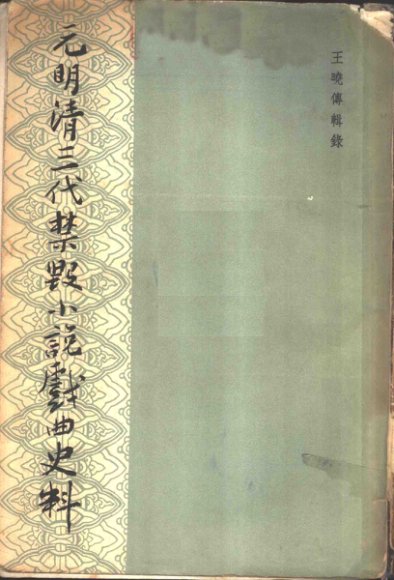 王曉傳輯錄
元明清三代禁毀小說戲曲史料